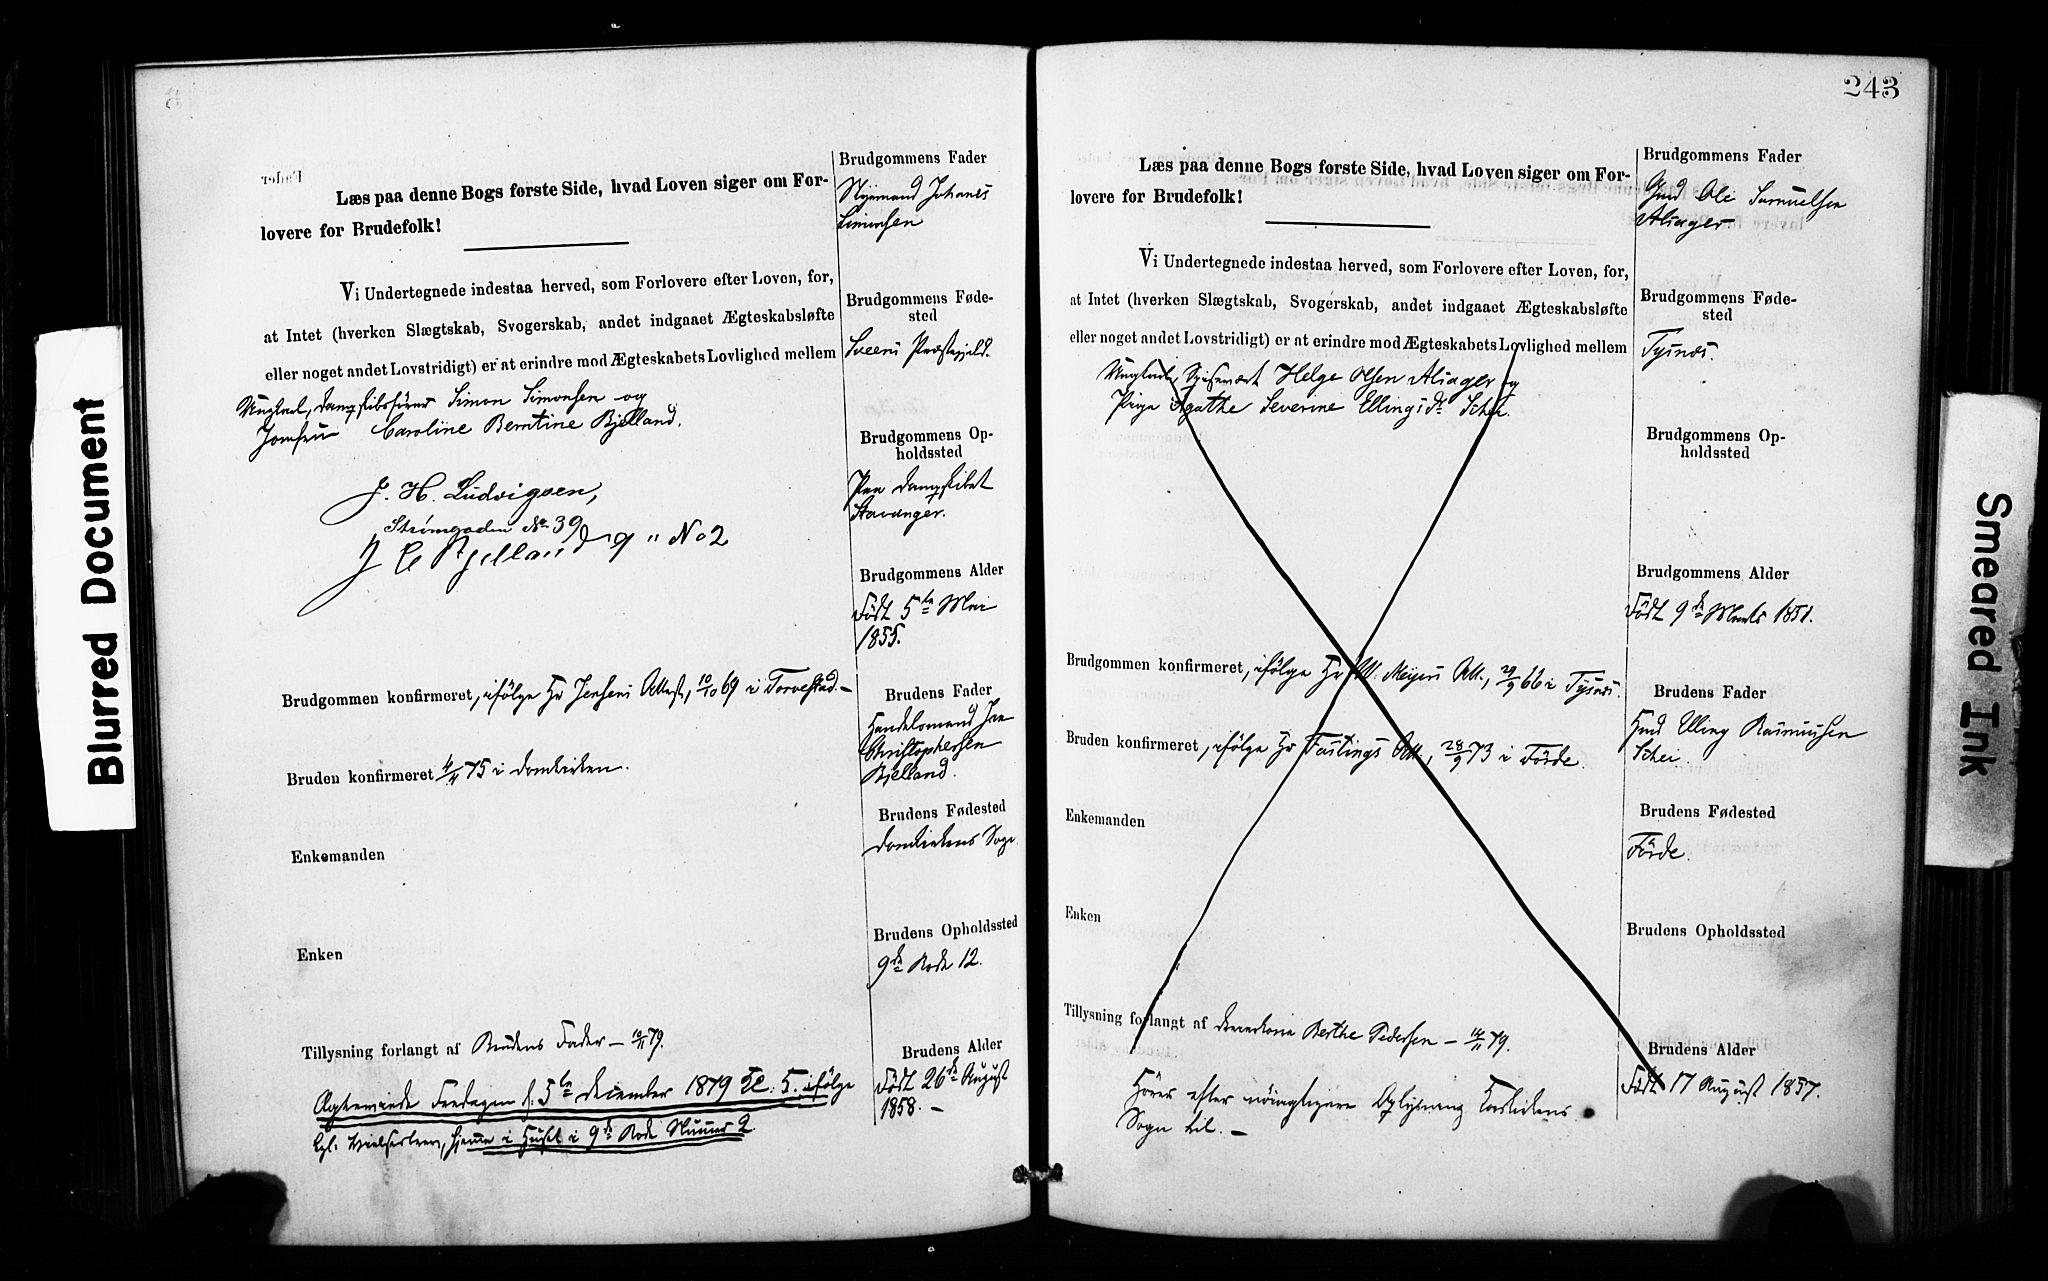 243
Læs paa denne Bogs første Side, hvad Loven siger om For-
lovere for Brudefolk!
Vi Undertegnede indestaa herved, som Forlovere efter Loven, for,
at Intet (hverken Slægtskab, Svogerskab, andet indgaaet Ægteskabsløfte
eller noget andet Lovstridigt) er at erindre mod Ægteskabets Lovlighed mellem
Ungkarl, Dampskibsfører Simon Simonsen og
Jomfru Caroline Berntine Bjelland.
J. H. Ludvigsen,
Strømgaden No 39
J C Bjelland 9 " No 2
Brudgommen konfirmeret, ifölge Hr Jensens Attest, 10/10 69 i Torvestad. —
Bruden konfirmeret 4/11 75 i Domkirken.
Enkemanden
Enken
Tillysning forlangt af Brudens Fader — 10/11 79.
Ægteviede Fredagen d. 5te December 1879 Kl: 5. ifölge
kgl: Bevilling, hjemme i Huset i 9de Rode Nummer 2.
Brudgommens Fader
Johanes
Simonsen
BrudgommensFøde-
sted
Sveens Præstegjeld.
Brudgommens Op-
holdssted
Paa Dampskibet
Stavanger.
Brudgommens Alder
Födt 5te Mai
1855.
Brudens Fader
Handelsmand Jan
Christophersen
Bjelland.
Brudens Fødested
Domkirkens Sogn
Brudens Opholdssted
9de Rode 12.
Brudens Alder
Födt 26de August
1858. —
Læs paa denne Bogs første Side, hvad Loven siger om For-
lovere for Brudefolk!
Vi Undertegnede indestaa herved, som Forlovere efter Loven, for,
at Intet (hverken Slægtskab, Svogerskab, andet indgaaet Ægteskabsløfte
eller noget andet Lovstridigt) er at erindre mod Ægteskabets Lovlighed mellem
Ungkarl, Spisevært Helge Olsen Aliager og
Pige Agathe Severine Ellingsdr Schei.
Brudgommen konfirmeret, ifölge Hr M. Meyers Att., 29/9 66 i Tysnæs.
Bruden konfirmeret, ifölge Hr Fastings Att., 28/9 73 i Förde.
Enkemanden
Enken
Tillysning forlangt af Berthe Pedersen — 14/11 79.
Hörer efter nöiagtigere Oplysning Korskirkens
Sogn til. —
Brudgommens Fader
Gmd Ole Samuelsen
Aliager
Brudgommens Føde-
sted
Tysnæs.
Brudgommens Op-
holdssted
Brudgommens Alder
Födt 9de Marts 1851.
Brudens Fader
Gmd Elling Rasmussen
Schei.
Brudens Fødested
Förde.
Brudens Opholdssted
Brudens Alder
Födt 17 August 1857.
Blurred Document
Smeared Ink